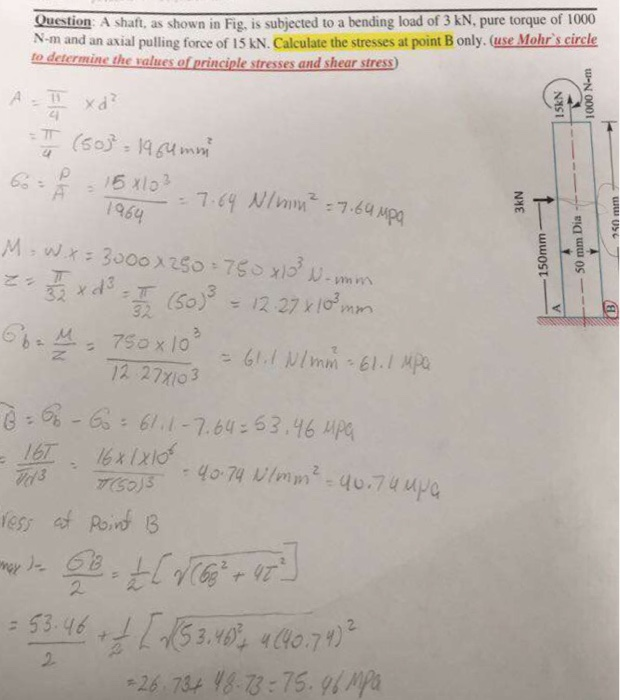 Question: A shaft, as shown in Fig, is subjected to a bending load of 3 kN, pure torque of 1000
N-m and an axial pulling force of 15 kN. Calculate the stresses at point B only. (use Mohr's circle
to determine the values of principle stresses and shear stress)
A = π/4 × d²
= π/4 (50)² = 1964 mm²
σo = P/A = 15 × 10³ / 1964 = 7.64 N/mm² = 7.64 Mpa
M = W.x = 3000 × 250 = 750 × 10³ N-mm
Z = π/32 × d³ = π/32 (50)³ = 12.27 × 10³ mm
σb = M/Z = 750 × 10³ / 12.27 × 10³ = 61.1 N/mm² = 61.1 MPa
B = σb - σo = 61.1 - 7.64 = 53.46 MPa
= 16T/πd³ = 16 × 1 × 10⁶ / π(50)³ = 40.74 N/mm² = 40.74 MPa
ress at Point B
max) = σB/2 = 1/2 [√(σB² + 4τ²]
= 53.46/2 + 1/2 [√(53.46)² + 4(40.74)²
= 26.73 + 48.73 = 75.46 MPa
15kN
1000 N-m
3kN
150mm
50 mm Dia
250 mm
A
B